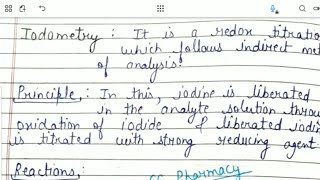 Iodometry : It is a redox titration
which follows indirect met
of analysis.
Principle : In this, iodine is liberated
in the analyte solution throu
oxidation of iodide & liberated iodi
is titrated with strong reducing agent
Reactions :
Pharmacy